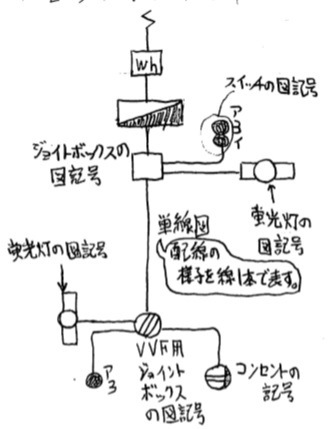 Wh
スイッチの図記号
ア
3
イ
ジョイトボックスの
図記号
蛍光灯の
図記号
単線図
配線の
様子を線1本で表す。
蛍光灯の図記号
ア
3
VVF用
ジョイント
ボックス
の図記号
コンセントの
記号